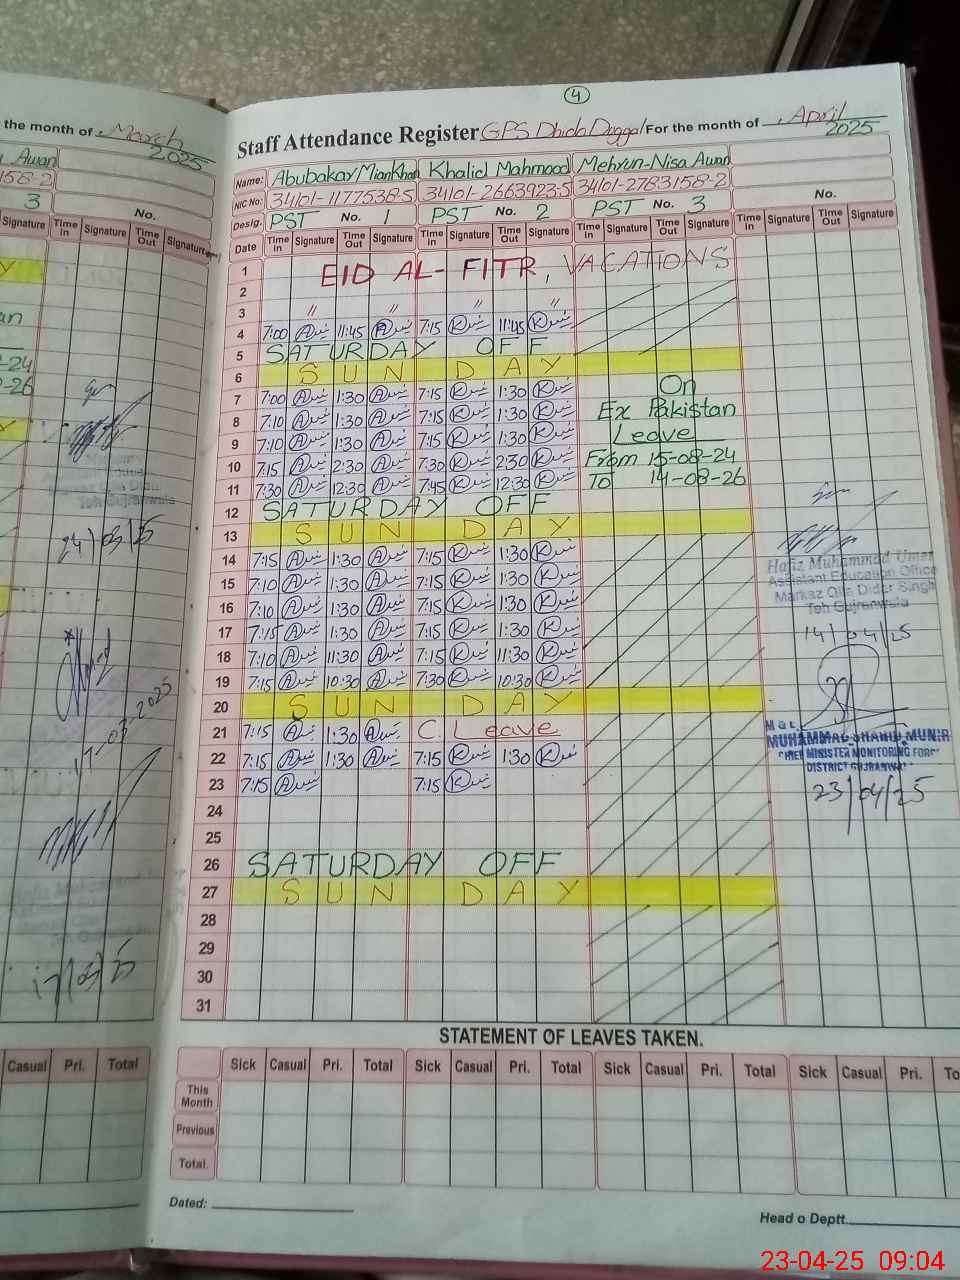 4
the month of March 2025
Staff Attendance Register GPS Dhido Duggal For the month of April 2025
Awan
158-2
3
No.
Signature Time In Signature Time Out Signature
Name: Abubakar Mian Khan Khalid Mahmood Mehrun-Nisa Awan
NIC No: 34101-1177538-5 34101-2663923-5 34101-2783158-2 No.
Desig. PST No. 1 PST No. 2 PST No. 3
Date Time In Signature Time Out Signature Time In Signature Time Out Signature Time In Signature Time Out Signature Time In Signature Time Out Signature
1 EID AL-FITR, VACATIONS
2
3 " " " "
4 7:00 11:45 7:15 11:45
5 SATURDAY OFF
6 SUNDAY
7 7:00 1:30 7:15 1:30 On
8 7:10 1:30 7:15 1:30 Ex Pakistan
9 7:10 1:30 7:15 1:30 Leave
10 7:15 2:30 7:30 2:30 From 15-08-24
11 7:30 12:30 7:45 12:30 To 14-08-26
12 SATURDAY OFF
13 SUNDAY
14 7:15 1:30 7:15 1:30
15 7:10 1:30 7:15 1:30
16 7:10 1:30 7:15 1:30
17 7:15 1:30 7:15 1:30
18 7:10 11:30 7:15 11:30
19 7:15 10:30 7:30 10:30
20 SUNDAY
21 7:15 1:30 C. Leave
22 7:15 1:30 7:15 1:30
23 7:15 7:15
24
25
26 SATURDAY OFF
27 SUNDAY
28
29
30
31
Hafiz Muhammad Umer
Assistant Education Office
Markaz Qila Didar Singh
Teh Gujranwala
14/04/25
MUHAMMAD SHAHID MUNIR
CHIEF MINISTER MONITORING FORCE
DISTRICT GUJRANWALA
23/04/25
24/03/25
Teh Gujranwala
17/03/25
STATEMENT OF LEAVES TAKEN.
Casual Pri. Total
Sick Casual Pri. Total Sick Casual Pri. Total Sick Casual Pri. Total Sick Casual Pri. To
This Month
Previous
Total.
Dated:
Head o Deptt.
23-04-25 09:04